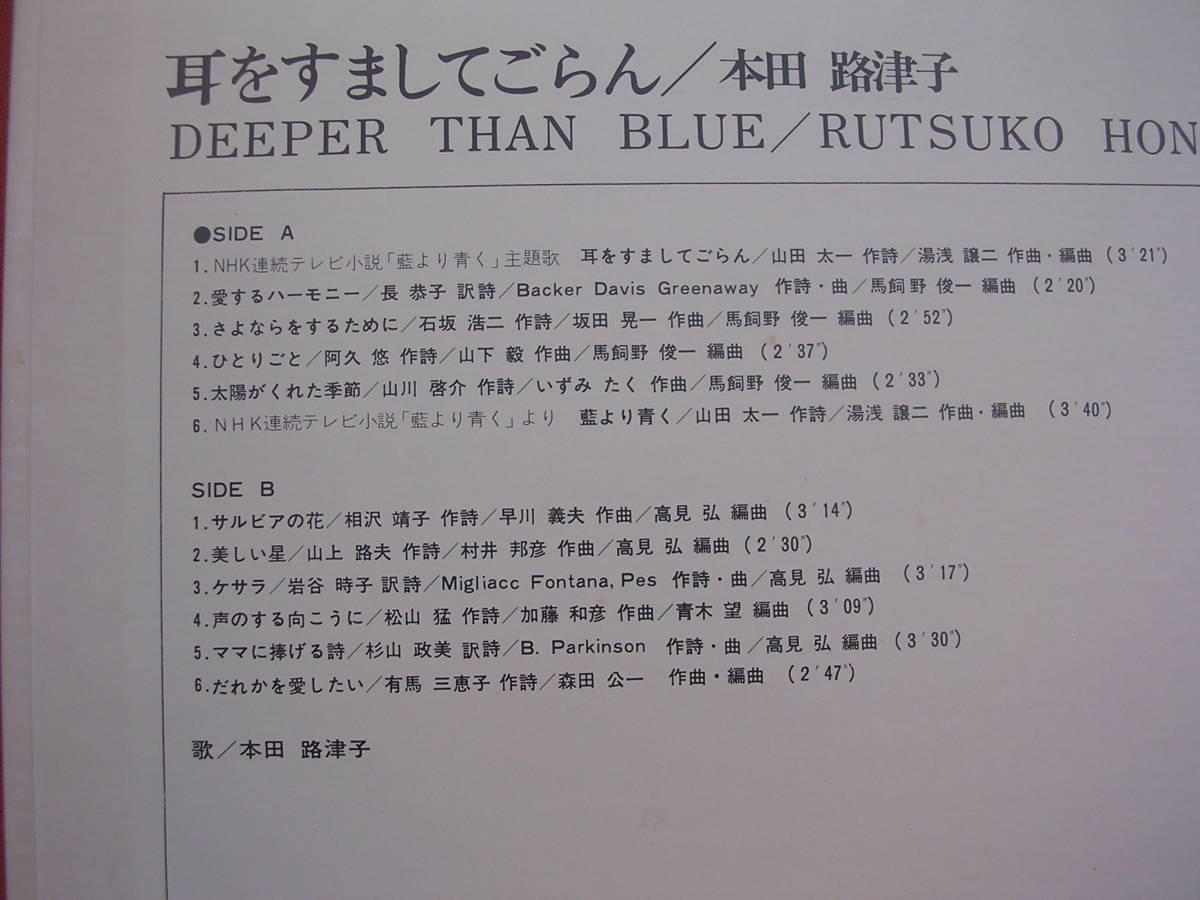 耳をすましてごらん／本田 路津子
DEEPER THAN BLUE／RUTSUKO HON
●SIDE A
1.NHK連続テレビ小説「藍より青く」主題歌 耳をすましてごらん／山田 太一 作詩／湯浅 譲二 作曲・編曲 (3′21″)
2.愛するハーモニー／長 恭子 訳詩／Backer Davis Greenaway 作詩・曲／馬飼野 俊一 編曲 (2′20″)
3.さよならをするために／石坂 浩二 作詩／坂田 晃一 作曲／馬飼野 俊一 編曲 (2′52″)
4.ひとりごと／阿久 悠 作詩／山下 毅 作曲／馬飼野 俊一 編曲 (2′37″)
5.太陽がくれた季節／山川 啓介 作詩／いずみ たく 作曲／馬飼野 俊一 編曲 (2′33″)
6.NHK連続テレビ小説「藍より青く」より 藍より青く／山田 太一 作詩／湯浅 譲二 作曲・編曲 (3′40″)
SIDE B
1.サルビアの花／相沢 靖子 作詩／早川 義夫 作曲／高見 弘 編曲 (3′14″)
2.美しい星／山上 路夫 作詩／村井 邦彦 作曲／高見 弘 編曲 (2′30″)
3.ケサラ／岩谷 時子 訳詩／Migliacc Fontana, Pes 作詩・曲／高見 弘 編曲 (3′17″)
4.声のする向こうに／松山 猛 作詩／加藤 和彦 作曲／青木 望 編曲 (3′09″)
5.ママに捧げる詩／杉山 政美 訳詩／B. Parkinson 作詩・曲／高見 弘 編曲 (3′30″)
6.だれかを愛したい／有馬 三恵子 作詩／森田 公一 作曲・編曲 (2′47″)
歌／本田 路津子